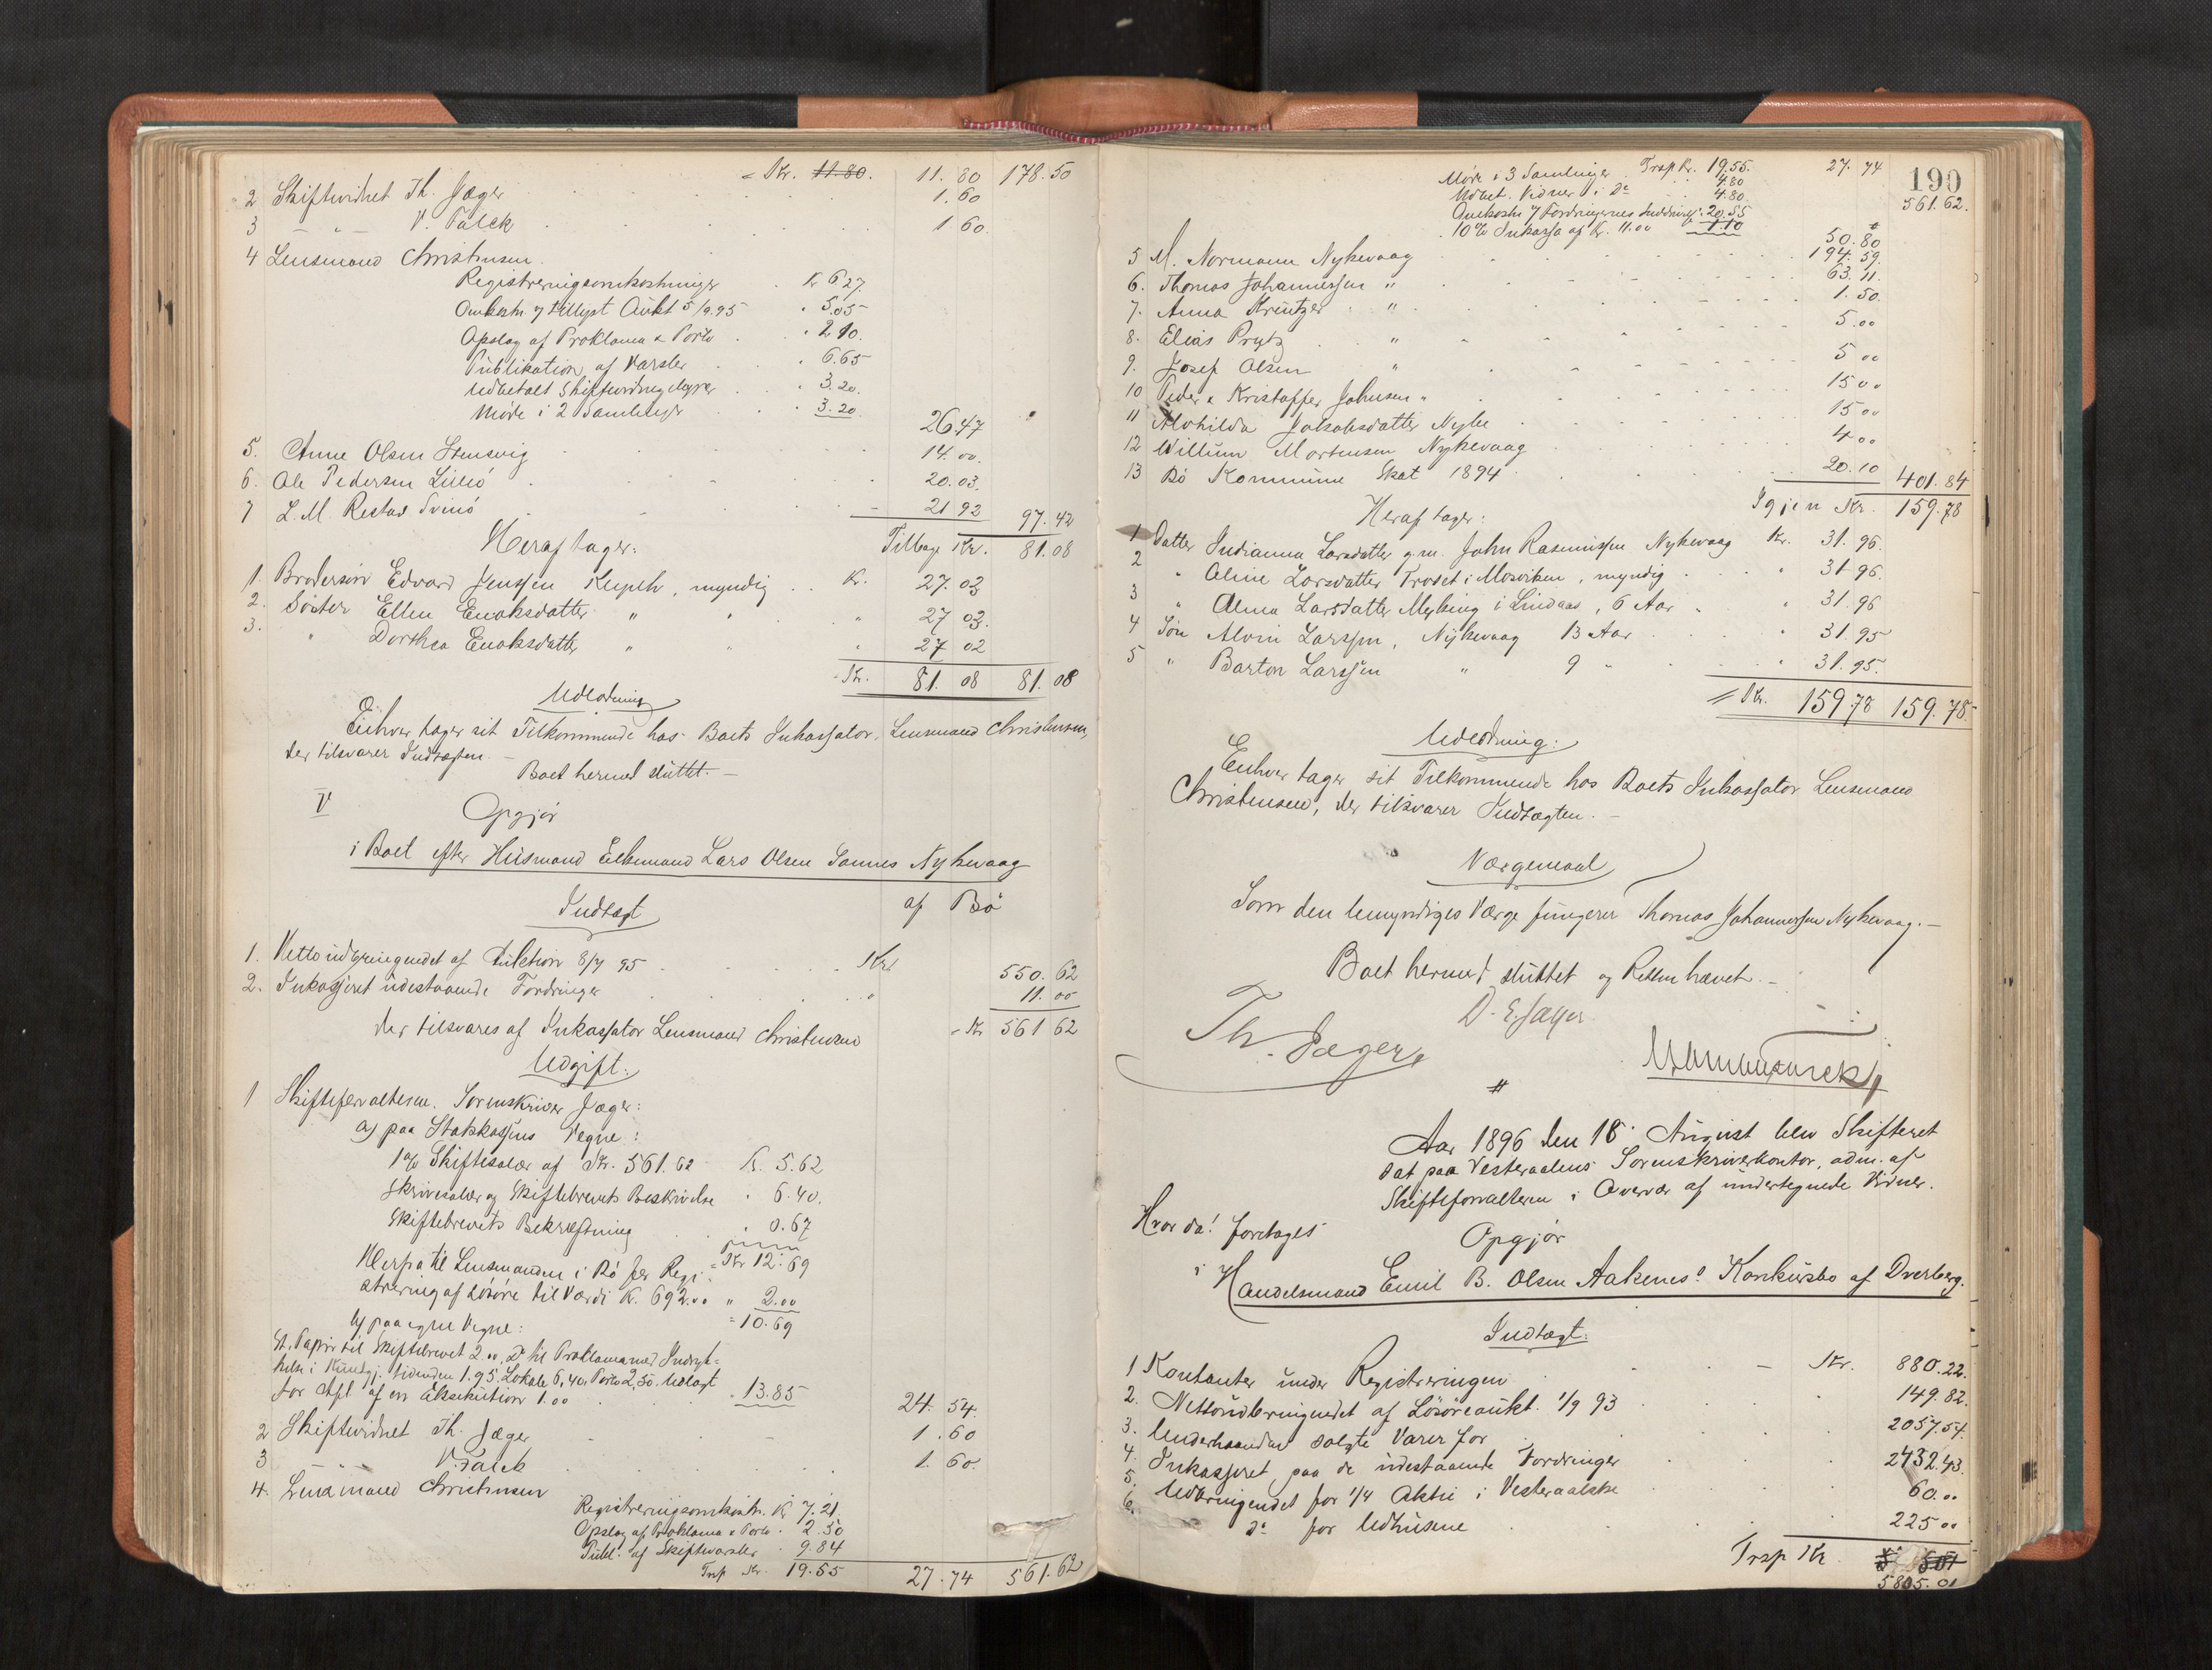 = Kr. 11.80. 11.80 178.50
2 Skiftevidnet Th. Jæger 1.60
3 — " — V. Falck 1 60.
4 Lensmand Christensen.
Registreringsomkostninger Kr 6 27
Omkostn. v/ tillyst Aukt 5/9.95 " 5.05
Opslag af Proklama & Porto " 2 10.
Publikation af Varsler " 6.65
Udbetalt Skiftevidnegebyrer " 3.20.
Møde i 2 Samlinger " 3.20.
26.47
5. Anne Olsen Stensvig 14.00.
6. Ole Pedersen Lillø 20.03.
7 L. M. Restad Svinø 21 92 97.42
Heraf tager: Tilbage Kr. 81.08
1. Brodersøn Edvard Jenssen, myndig Kr. 27.03
2. Søster Ellen Enoksdatter " " 27 03.
3. " Dorthea Enoksdatter " " 27 02
Kr. 81.08 81.08
Udlodning
Enhver tager sit Tilkommende hos Boets Inkassator, Lensmand Christensen,
der tilsvarer Indtægten. —
Boet hermed sluttet. —
V Opgjør
i Boet efter Husmand Enkemand Lars Olsen Sannes Nykvaag
af Bø
Indtægt
1. Nettoudbringendet af Auktion 8/7 95 Kr. 550.62
2. Inkasseret udestaaende Fordringer " 11.00
der tilsvares af Inkassator Lensmand Christensen = Kr 561 62
Udgift:
1 Skifteforvalteren. Sorenskriver Jæger:
a) paa Statskassens Vegne:
1% Skiftesalær af Kr. 561.62 Kr. 5.62
Skrivesalær og Skiftebrevets Beskrivelse " 6.40.
Skiftebrevets Bekræftning " 0.67
= Kr 12.69
Herfra til Lensmanden i Bø for Regi-
strering af Løsøre til Værdi K. 692.00 " 2.00
= 10.69
b) paa egne Vegne:
St. Papir til Skiftebrevet 2.00, Do til Proklama med Indryk-
kelse i Kundgj. tidenden 1.95. Lokale 6,40. Porto 2,50. Udlagt
for Afl. af en Eksekution 1.00 " 13.85 24.54.
2 Skiftevidnet Th. Jæger 1.60
3 — " — V. Falck 1.60.
4. Lensmand Christensen
Registreringsomkostn. Kr 7.21.
Opslag af Proklama & Porto " 2.50
Publ. af Skiftevarsler " 9.84
Trsp Kr. 19.55 27.74 561.62
190
Møde i 3 Samlinger Trsp Kr. 19.55. 27.74 561.62.
Udbet. Vidner i Do 4.80
4.80.
Omkostn v/ Fordringernes Inddrivelse 20.55
10% Inkasso af Kr. 11.00 1.10 50.80
5 M. Normann Nykvaag 194.59.
6. Thomas Johannessen " 63.11.
7. Anna Kreutzer " 1.50.
8. Elias Prytz " 5.00
9. Josef Olsen " 5 00
10 Peder & Kristoffer Johnsen " 15 00
11 Alvhilda Jakobsdatter Nyke 15 00
12 Willum Mortensen Nykevaag 4 00
13 Bø Kommune Skat 1894 20.10 401.84
Heraf tager: Igjen Kr. 159.78
1 Datter Indianna Larsdatter g.m. John Rasmussen Nykvaag Kr. 31.96.
2 " Oline Larsdatter Troset i Mosviken, myndig " 31 96.
3 " Alma Larsdatter Myking i Lindaas, 6 Aar " 31.96
4 Søn Alvin Larssen, Nykvaag 13 Aar " 31.95
5 " Barton Larssen " 9 " " 31.95.
= Kr. 159.78 159.78.
Udlodning:
Enhver tager sit Tilkommende hos Boets Inkassator Lensmand
Christensen, der tilsvarer Indtægten. —
Værgemaal
Som den umyndiges Værge fungerer Thomas Johannessen Nykvaag. —
Boet hermed sluttet og Retten hævet. —
D. E. Jæger
Th. Jæger
#
Aar 1896 den 18. August blev Skifteret
sat paa Vesteraalens Sorenskriverkontor, adm. af
Skifteforvalteren i Overvær af undertegnede Vidner.
Hvor da! foretoges
Opgjør
i Handelsmand Emil B. Olsen Aaknes's Konkursbo af Dverberg.
Indtægt:
1 Kontanter under Registreringen Kr. 880.22.
2. Nettoudbringendet af Løsøreaukt. 1/9 93 149.82.
3. Underhaanden solgte Varer for 2057.54.
4. Inkasseret paa de udestaaende Fordringer 2432.43.
5. Udbringendet for 1/4 Aktie i Vesteraalske 60.00
6. Do for Udhusene 225 00
Trsp Kr 5805.01